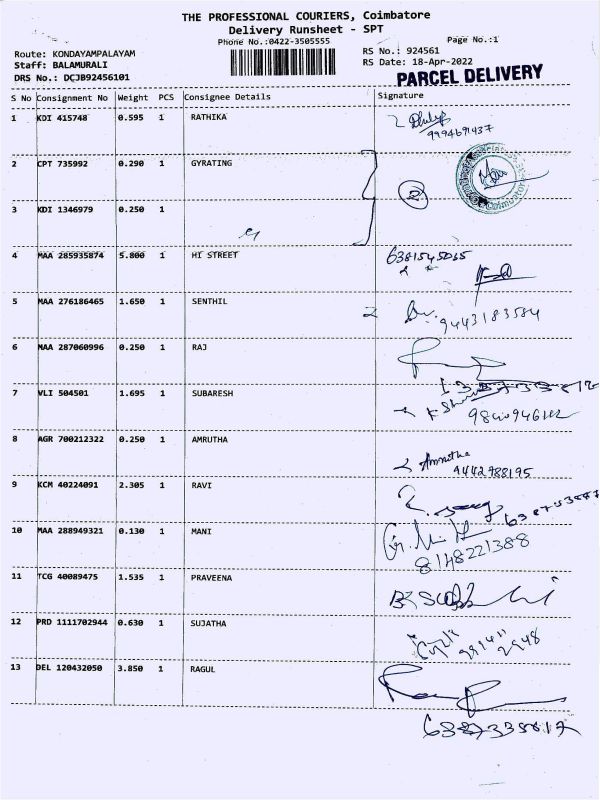 THE PROFESSIONAL COURIERS, Coimbatore
Delivery Runsheet - SPT
Phone No.:0422-3505555
Page No.:1
Route: KONDAYAMPALAYAM
RS No.: 924561
Staff: BALAMURALI
RS Date: 18-Apr-2022
DRS No.: DCJB92456101
PARCEL DELIVERY
S No Consignment No Weight PCS Consignee Details Signature
1 KDI 415748 0.595 1 RATHIKA
9994691437
2 CPT 735992 0.290 1 GYRATING
2
3 KDI 1346979 0.250 1
4 MAA 285935874 5.800 1 HI STREET
5 MAA 276186465 1.650 1 SENTHIL
9443183584
6 MAA 287060996 0.250 1 RAJ
7 VLI 504501 1.695 1 SUBARESH
8 AGR 700212322 0.250 1 AMRUTHA
Amrutha
9442988195
9 KCM 40224091 2.305 1 RAVI
10 MAA 288949321 0.130 1 MANI
8148221388
11 TCG 40089475 1.535 1 PRAVEENA
12 PRD 1111702944 0.630 1 SUJATHA
13 DEL 120432050 3.850 1 RAGUL